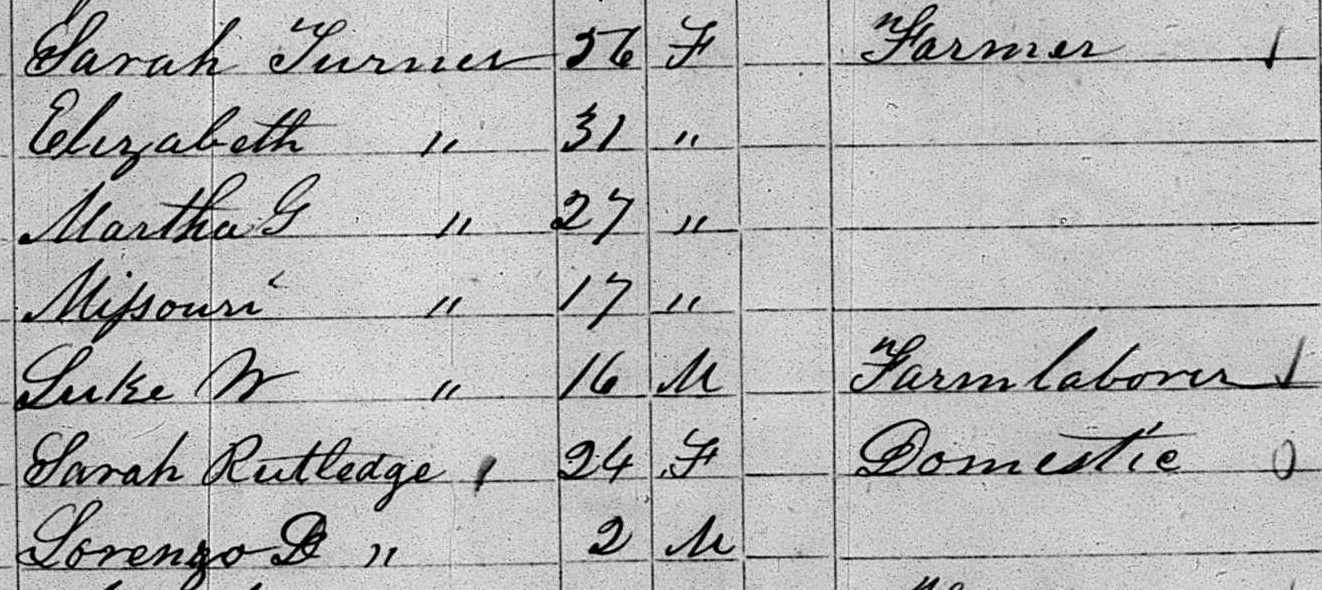 Sarah Turner 56 F Farmer
Elizabeth " 31 "
Martha G " 27 "
Missouri " 17 "
Luke W " 16 M Farm laborer
Sarah Rutledge 24 F Domestic 0
Lorenzo D " 2 M